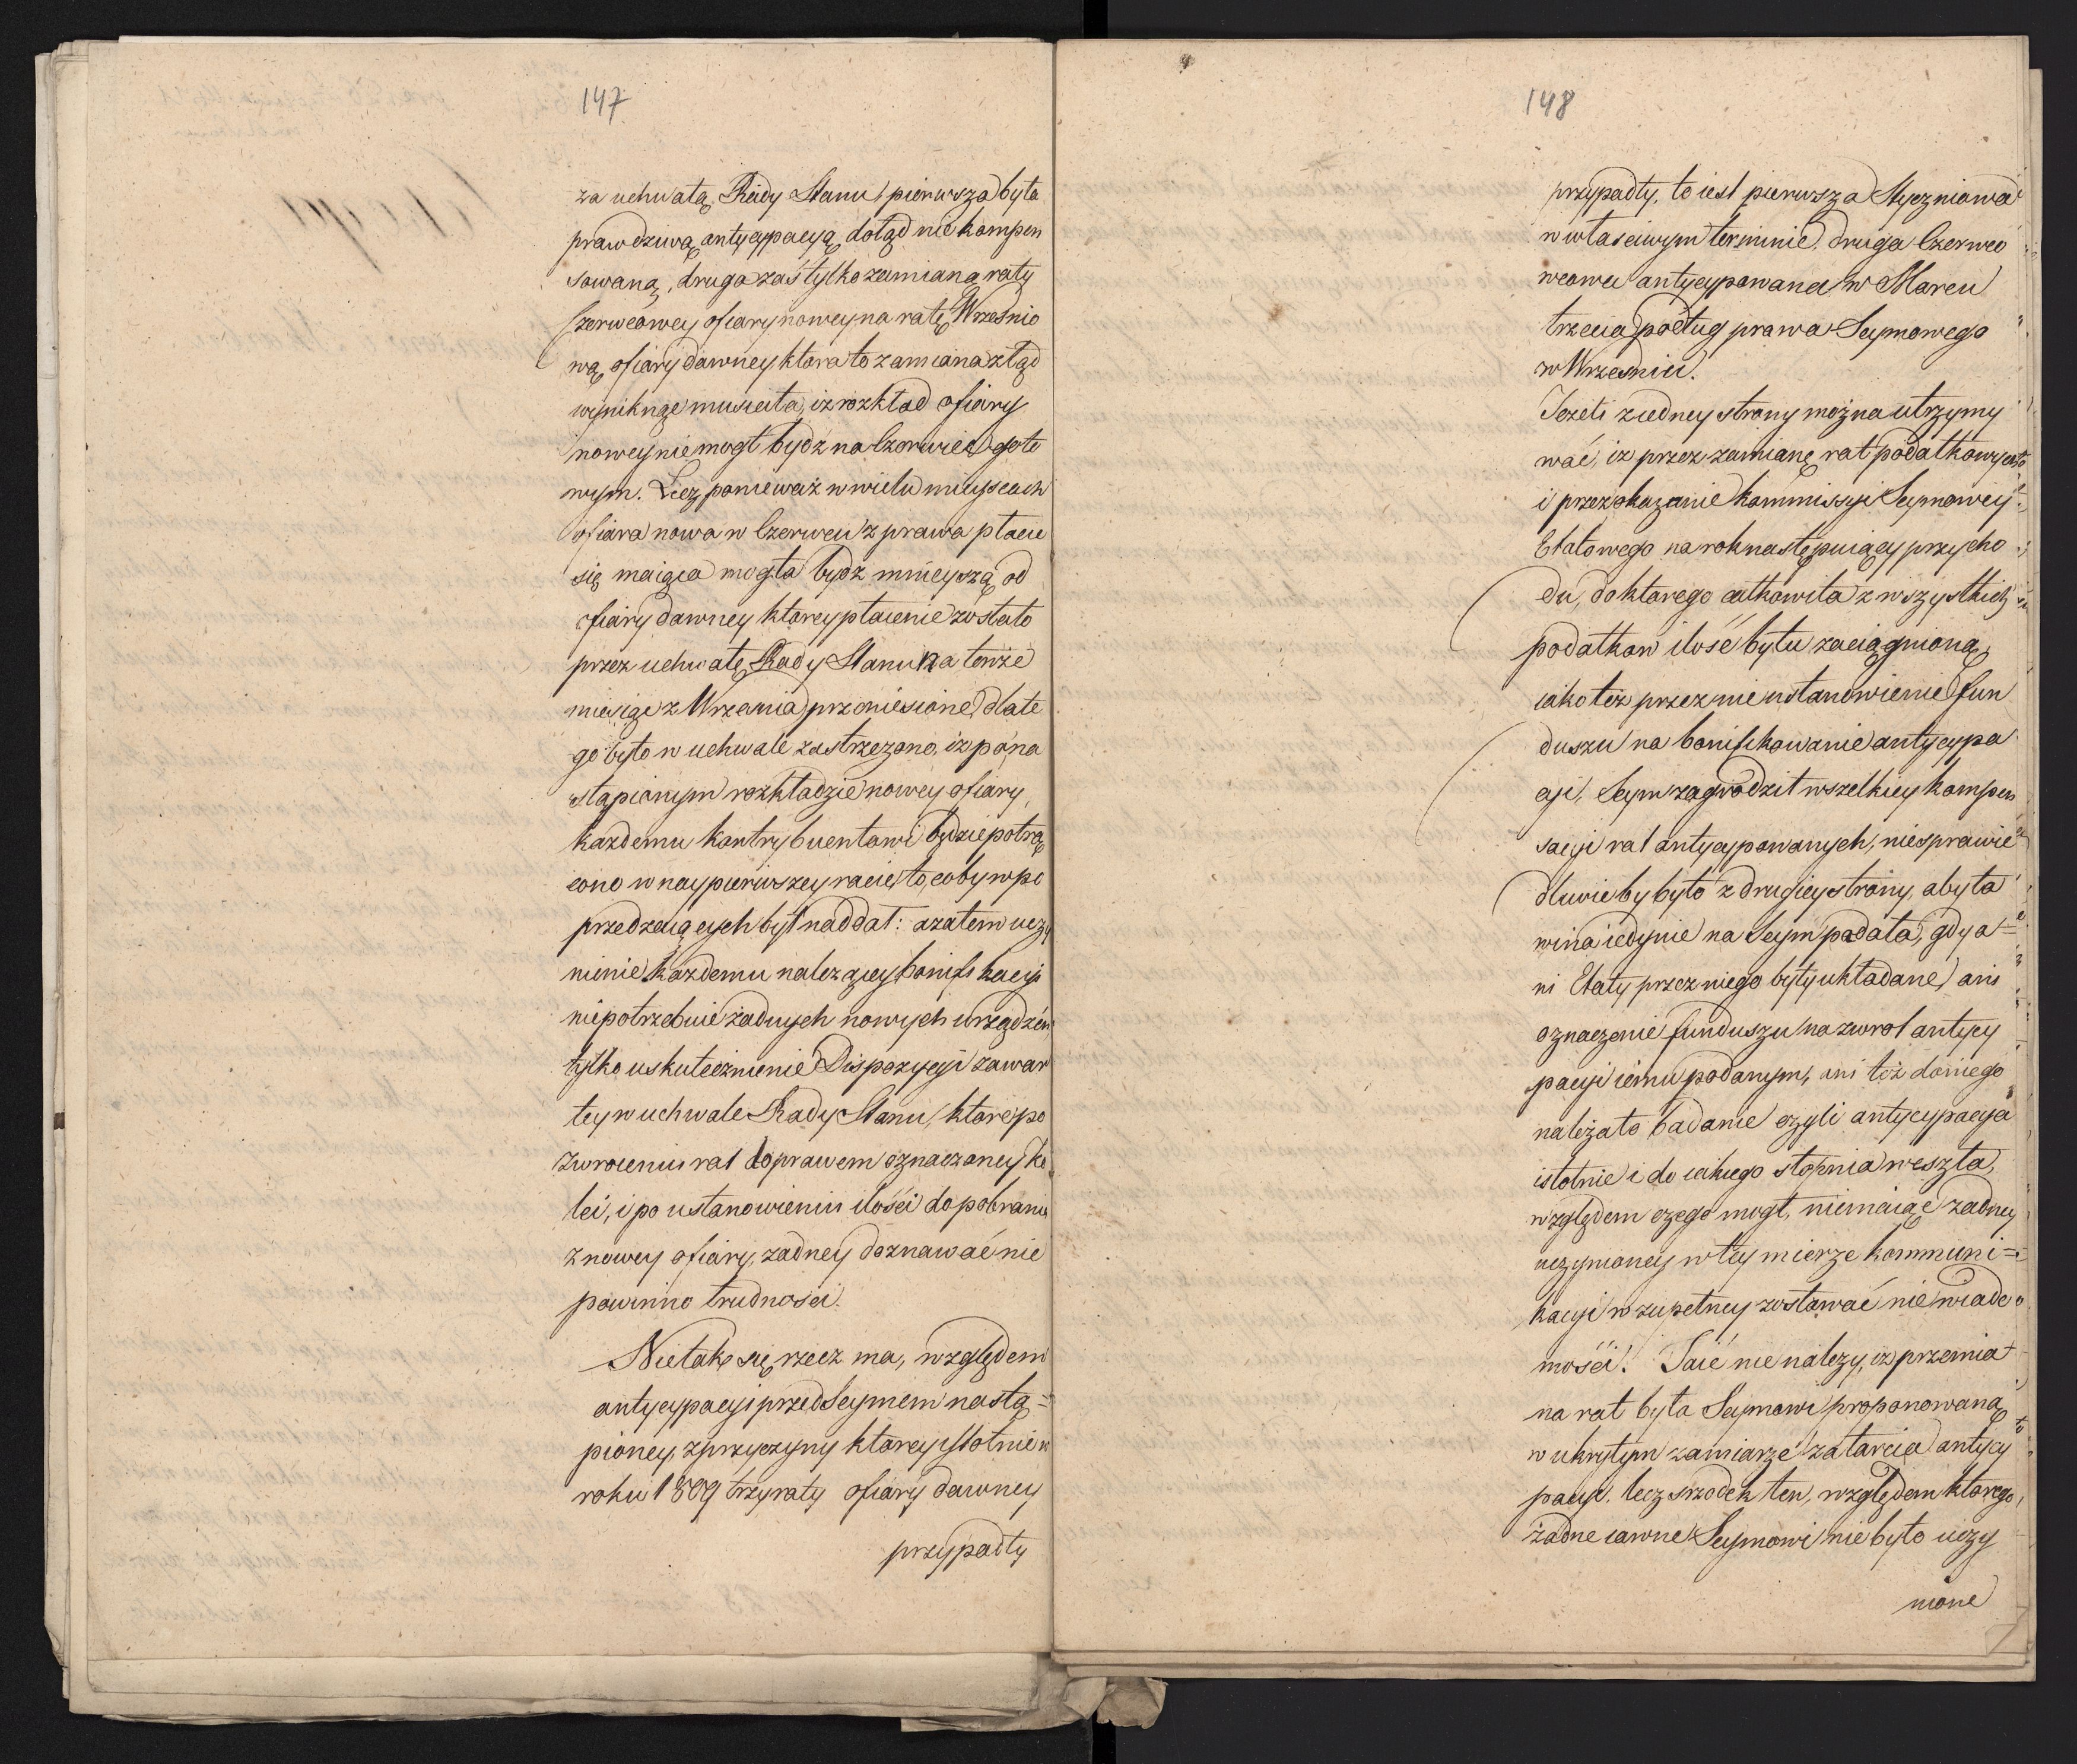 147
za uchwałą Rady Stanu, pierwsza była
prawdziwą antycypacyą dotąd nie kompen
sowaną, druga zaś tylko zamianą raty
Czerwcowey ofiary nowey na ratę Wrześnio
wą ofiary dawney, ktora to zamiana ztąd
wyniknąć musiała, iż rozkład ofiary
nowey nie mogł bydź na Czerwiec goto
wym. Lecz ponieważ w wielu mieyscach
ofiara nowa w Czerwcu z prawa płacić
się maiąca mogła bydź mnieyszą od
ofiary dawney ktorey płacenie zostało
przez uchwałę Rady Stanu na tenże
miesiąc z Września przeniesione, dlate
go było w uchwale zastrzeżono, iż po na
stąpionym rozkładzie nowey ofiary,
każdemu kontrybuentowi będzie potrą
cono w naypierwszey racie, to, coby w po
przedzaiących był naddał: a zatem uczy
nienie każdemu należącey bonifikacyi
niepotrzebuie żadnych nowych urządzeń
tylko uskutecznienie Dispozycyi zawar
tey w uchwale Rady Stanu, ktore po
zwroceniu rat do prawem oznaczoney ko
lei, i po ustanowieniu ilości do pobrania
z nowey ofiary, żadney doznawać nie
powinno trudności.
Nietak się rzecz ma, względem
antycypacyi przed Seymem nastą=
pioney, z przyczyny ktorey istotnie w
roku 1809 trzy raty ofiary dawney
przypadły
148
przypadły, to iest pierwsza Styczniowa
w właściwym terminie, druga Czerwco
wcowa antycypowana w Marcu
trzecia podług prawa Seymowego
w Wrześniu.
Jeżeli z iedney strony można utrzymy
wać, iż przez zamianę rat podatkowych
i przez okazanie kommissyi Seymowey
Etatowego na rok następuiący przycho
du, do ktorego całkowita z wszystkich
podatkow ilość była zaciągnioną,
iako też przez nieustanowienie fun
duszu na bonifikowanie antycypa
cyi, Seym zagrodził wszelkiey kompen
sacyi rat antycypowanych, niesprawie
dliwie by było z drugiey strony, aby ta
wina iedynie na Seym padała, gdy a=
ni Etaty przez niego były układane, ani
oznaczenie funduszu na zwrot antycy
pacyi iemu podanym, ani też do niego
należało badanie czyli antycypacya
istotnie i do iakiego stopnia weszła,
względem czego mogł, niemaiąc żadney
uczynioney w tey mierze kommuni=
kacyi w zupełney zostawać niewiado
mości. Taić nie należy, iż przemia
na rat była Seymowi proponowaną
w ukrytym zamiarze zatarcia antycy
pacyi. lecz srzodek ten, względem ktorego,
żadne iawne Seymowi nie było uczy
nione